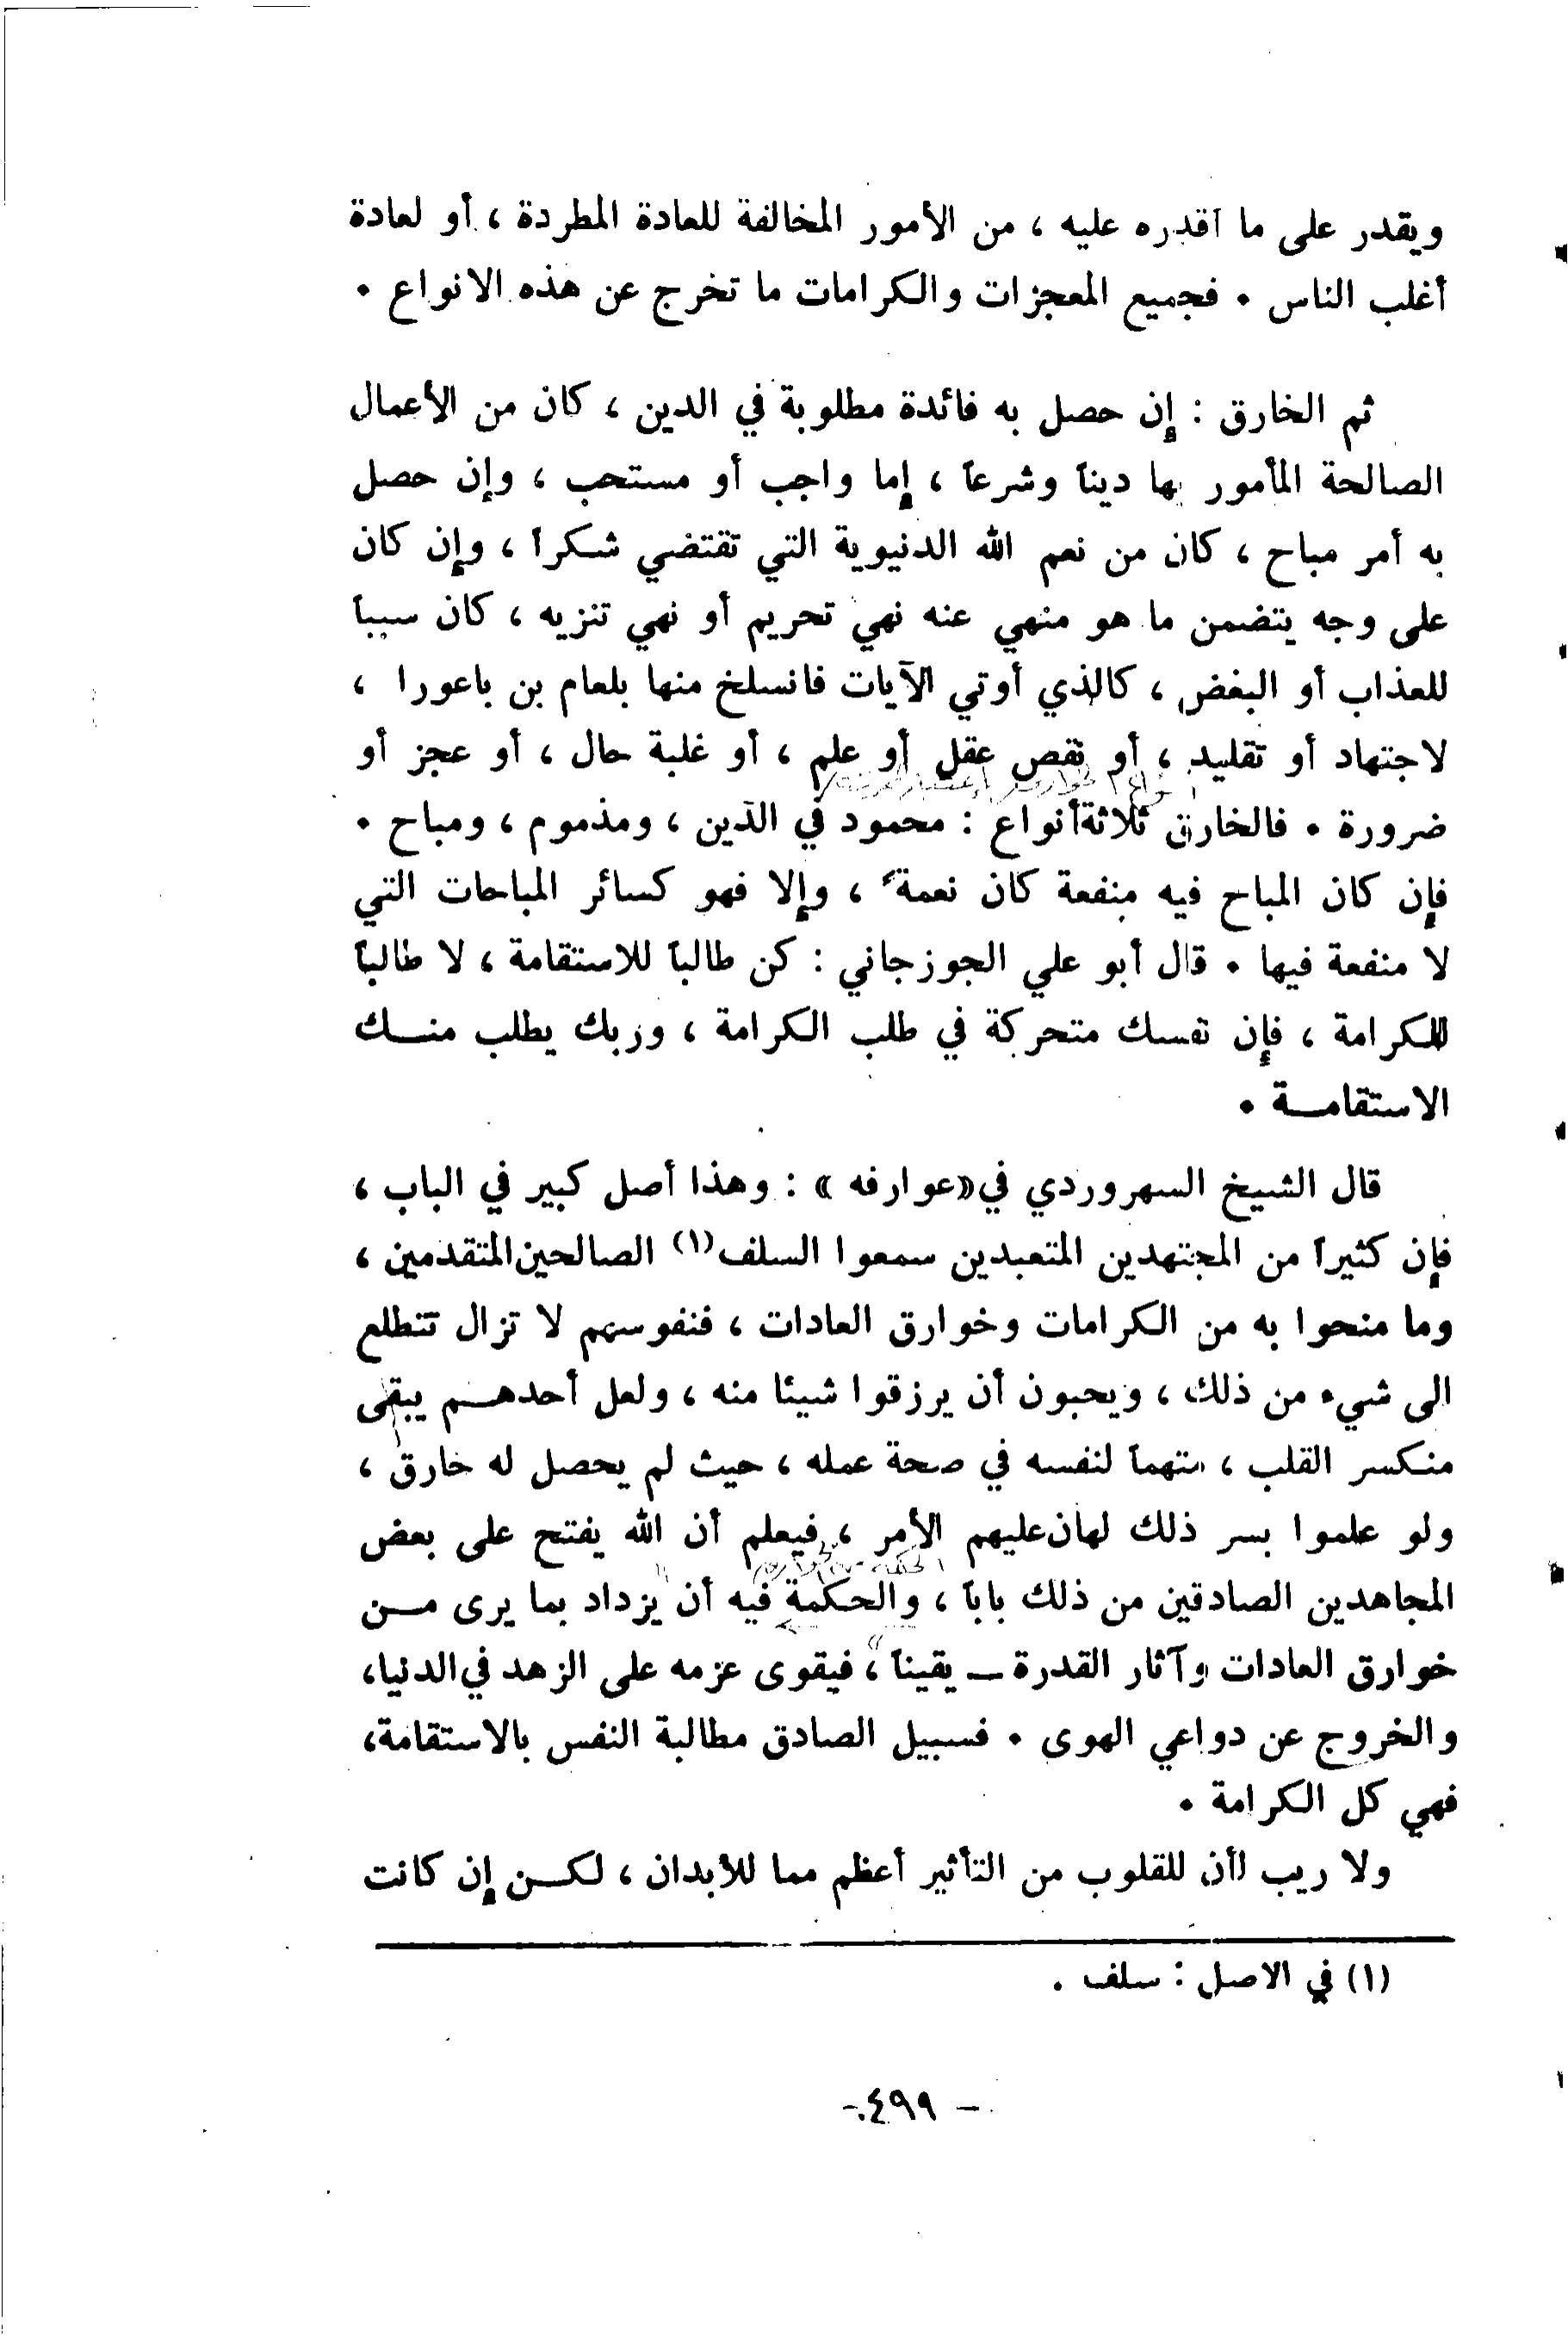 ويقدر على ما أقدره عليه ، من الأمور المخالفة للعادة المطردة ، أو لعادة
أغلب الناس . فجميع المعجزات والكرامات ما تخرج عن هذه الانواع .
ثم الخارق : إن حصل به فائدة مطلوبة في الدين ، كان من الأعمال
الصالحة المأمور بها ديناً وشرعاً ، إما واجب أو مستحب ، وإن حصل
به أمر مباح ، كان من نعم الله الدنيوية التي تقتضي شكراً ، وإن كان
على وجه يتضمن ما هو منهي عنه نهي تحريم أو نهي تنزيه ، كان سبباً
للعذاب أو البغض ، كالذي أوتي الآيات فانسلخ منها بلعام بن باعورا ،
لاجتهاد أو تقليد ، أو نقص عقل أو علم ، أو غلبة حال ، أو عجز أو
ضرورة . فالخارق ثلاثة أنواع : محمود في الدين ، ومذموم ، ومباح .
فإن كان المباح فيه منفعة كان نعمة ، وإلا فهو كسائر المباحات التي
لا منفعة فيها . قال أبو علي الجوزجاني : كن طالباً للاستقامة ، لا طالباً
للكرامة ، فإن نفسك متحركة في طلب الكرامة ، وربك يطلب منــك
الاستقامــة .
قال الشيخ السهروردي في «عوارفه » : وهذا أصل كبير في الباب ،
فإن كثيراً من المجتهدين المتعبدين سمعوا السلف(١) الصالحين المتقدمين ،
وما منحوا به من الكرامات وخوارق العادات ، فنفوسهم لا تزال تتطلع
الى شيء من ذلك ، ويحبون أن يرزقوا شيئا منه ، ولعل أحدهــم يبقى
منكسر القلب ، متهماً لنفسه في صحة عمله ، حيث لم يحصل له خارق ،
ولو علموا بسر ذلك لهان عليهم الأمر ، فيعلم أن الله يفتح على بعض
المجاهدين الصادقين من ذلك باباً ، والحكمة فيه أن يزداد بما يرى مــن
خوارق العادات وآثار القدرة ــ يقيناً ، فيقوى عزمه على الزهد في الدنيا،
والخروج عن دواعي الهوى . فسبيل الصادق مطالبة النفس بالاستقامة،
فهي كل الكرامة .
ولا ريب أن للقلوب من التأثير أعظم مما للأبدان ، لكــن إن كانت
(١) في الاصل : سلف .
- ٤٩٩ -